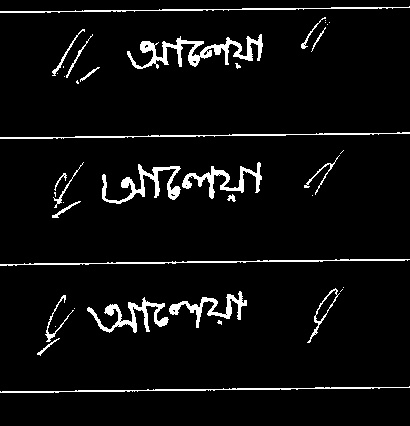 আলেয়া
আলেয়া
আলেয়া